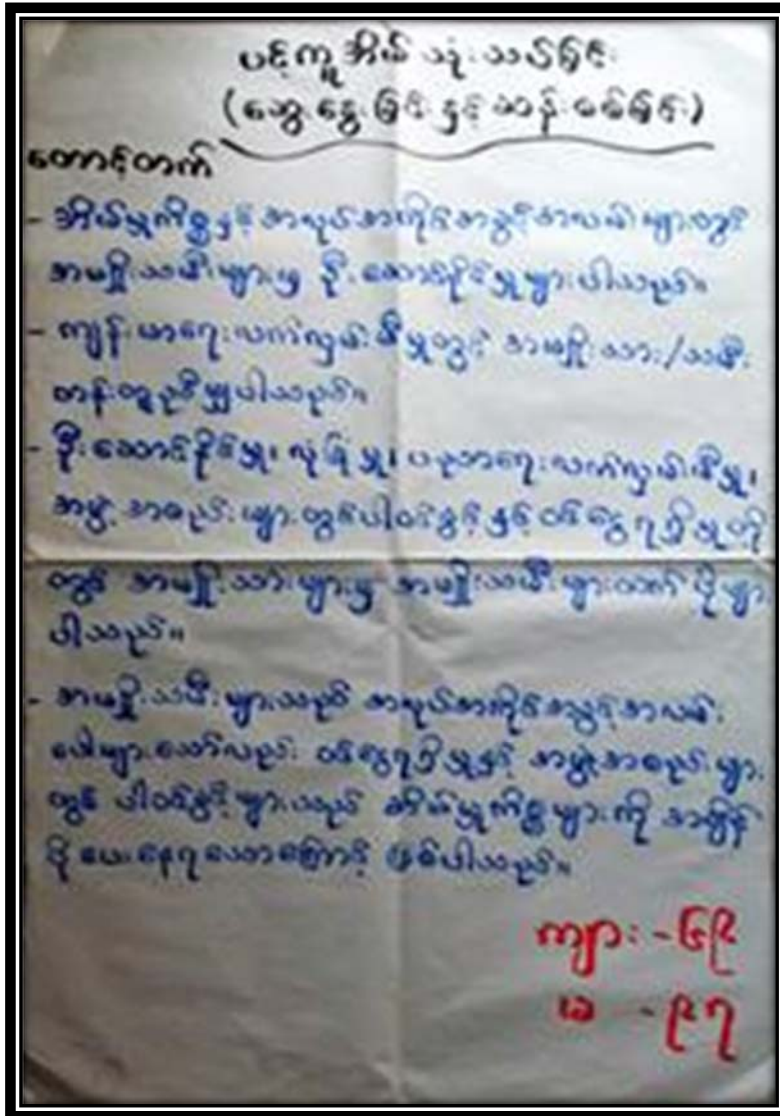 ပင့်ကူအိမ် သုံးသပ်ခြင်း
(ဆွေးနွေးခြင်းနှင့်ဆန်းစစ်ခြင်း)
တောင့်တက်
- အိမ်မှုကိစ္စနှင့် အလုပ်အကိုင်အခွင့်အလမ်းများတွင်
အမျိုးသမီးများမှ ဦးဆောင်နိုင်မှုများပါသည်။
- ကျန်းမာရေးလက်လှမ်းမီမှုတွင် အမျိုးသား/သမီး
တန်းတူညီမျှပါသည်။
- ဦးဆောင်နိုင်မှု၊ လုံခြုံမှု၊ ပညာရေးလက်လှမ်းမီမှု၊
အဖွဲ့အစည်းများတွင်ပါဝင်ခွင့်နှင့် ဝင်ငွေရရှိမှုတို့
တွင် အမျိုးသားများမှ အမျိုးသမီးများထက် ပိုများ
ပါသည်။
- အမျိုးသမီးများသည် အလုပ်အကိုင်အခွင့်အလမ်း
ပေါများသော်လည်း ဝင်ငွေရရှိမှုနှင့် အဖွဲ့အစည်းများ
တွင် ပါဝင်ခွင့်များသည် အိမ်မှုကိစ္စများကို အချိန်
ပိုပေးနေရသောကြောင့် ဖြစ်ပါသည်။
ကျား - ၆၉
မ - ၉၇